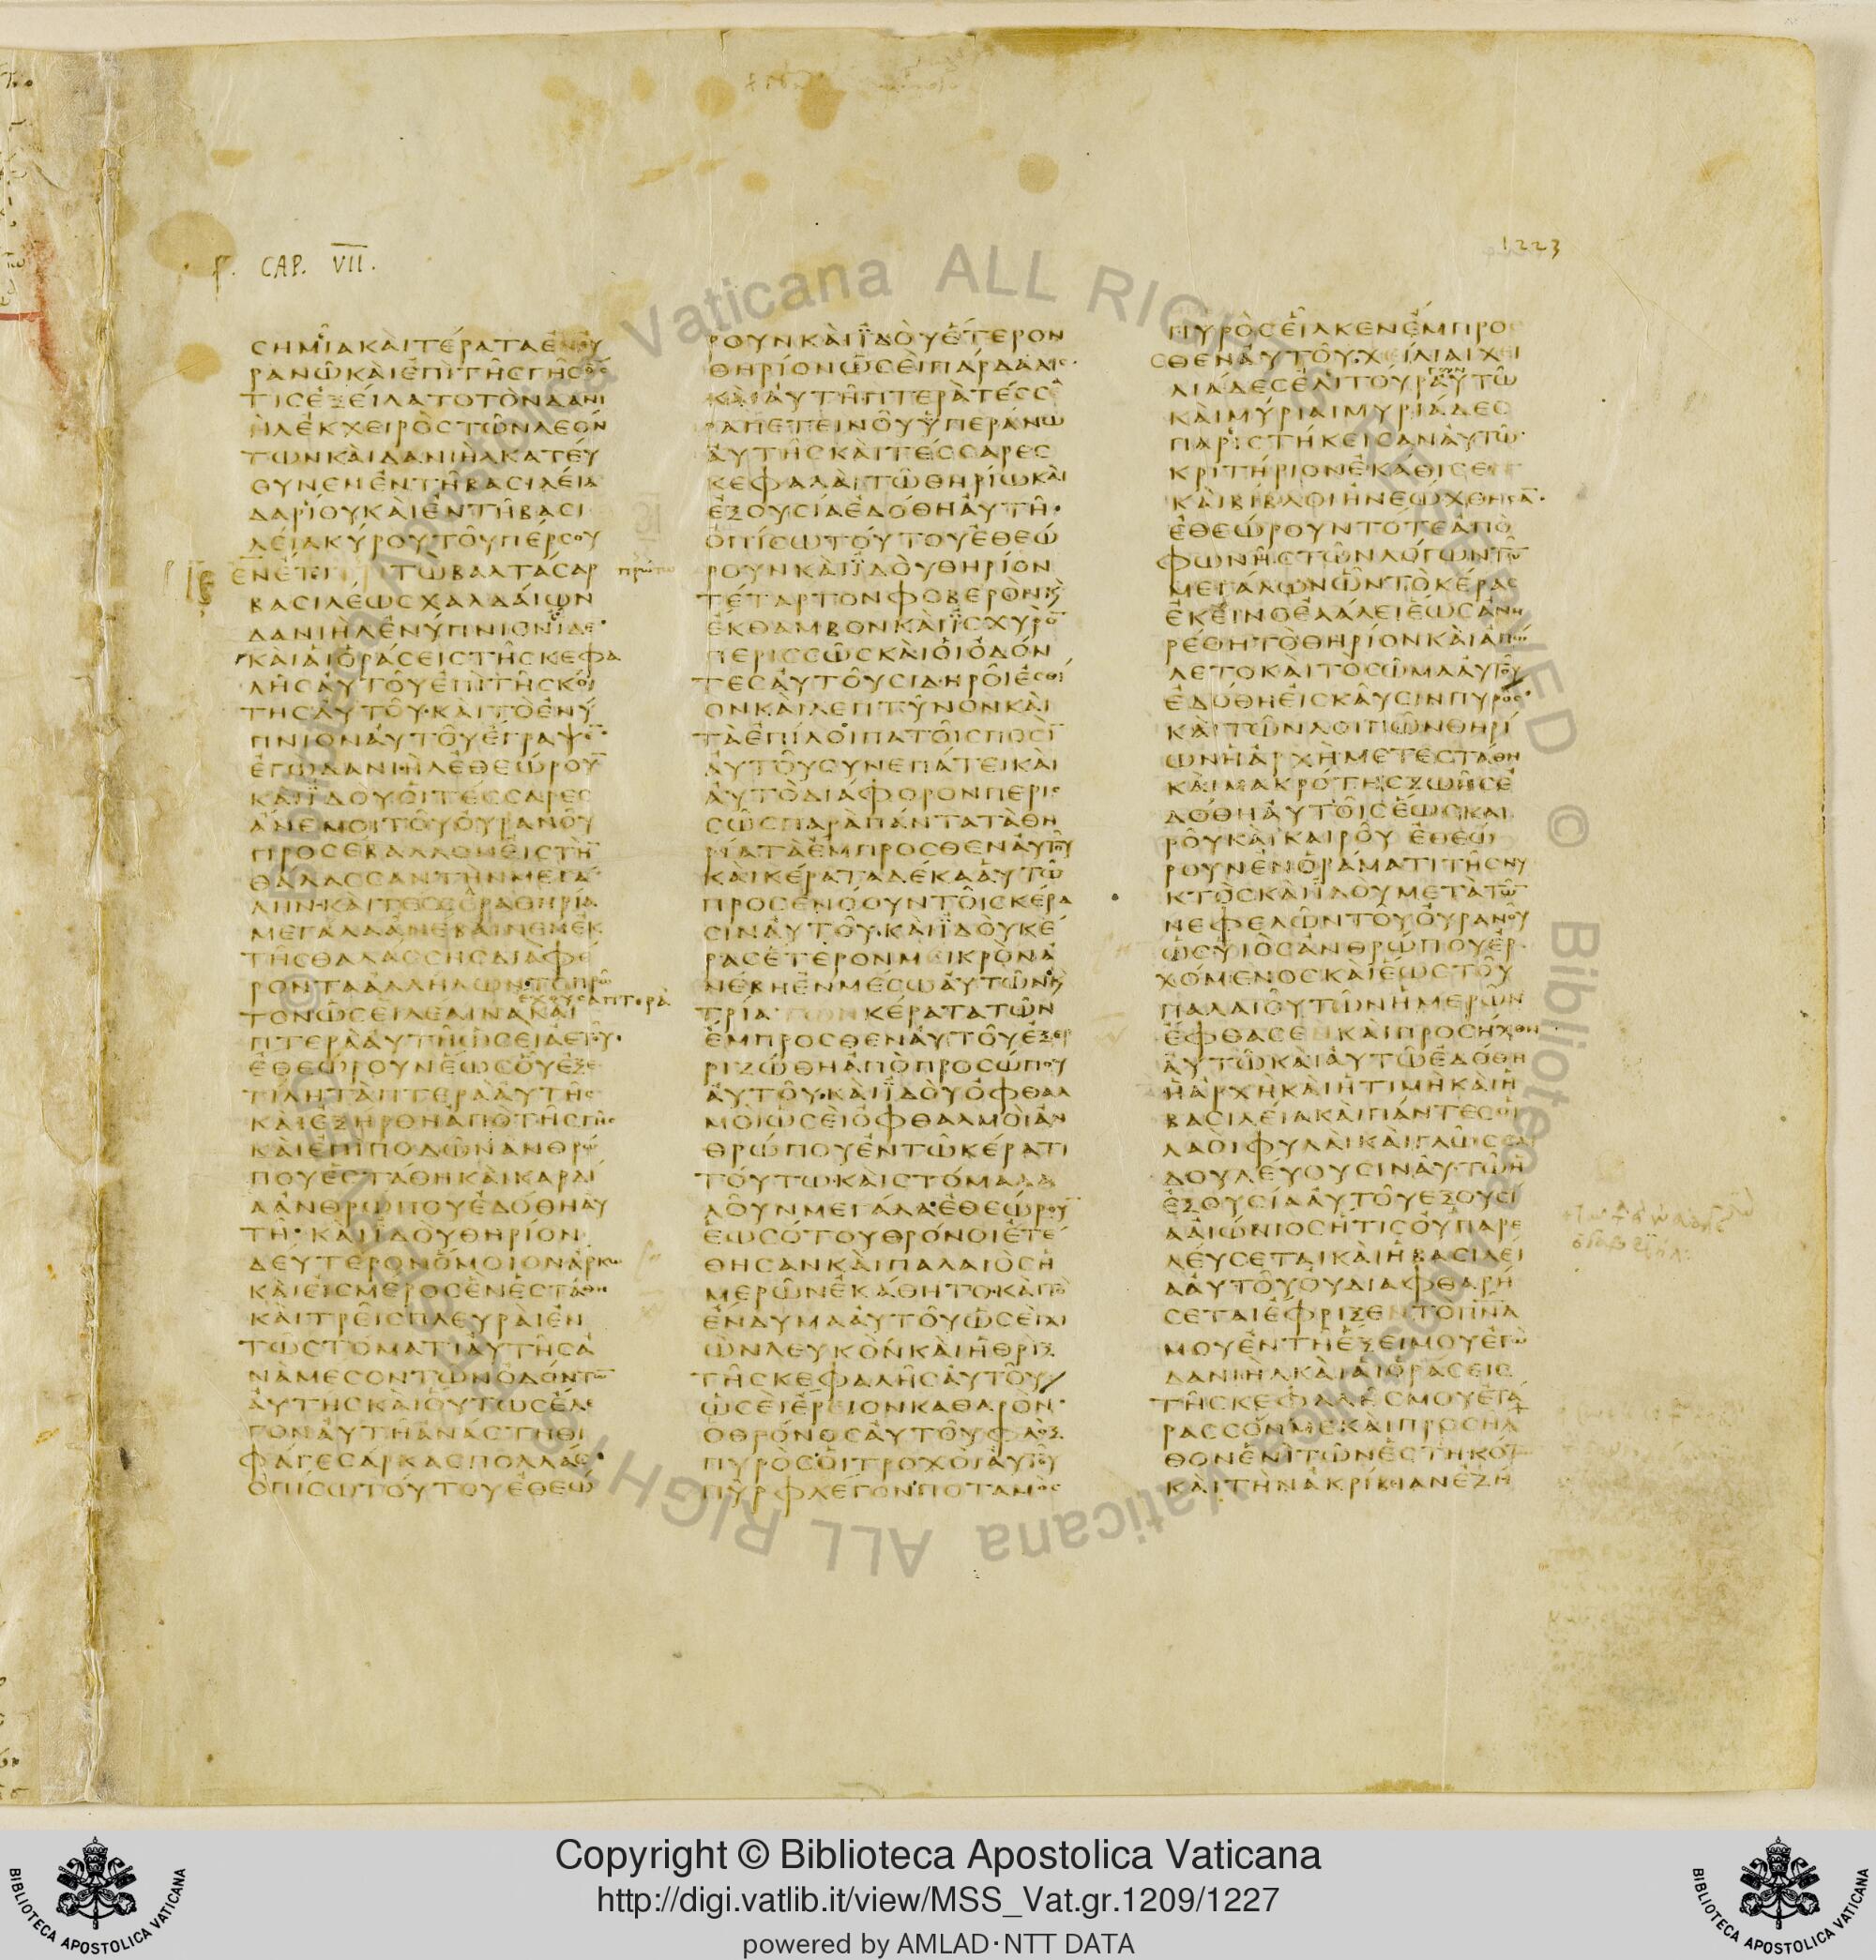 ς. CAP. VII.
1223
ϹΗΜΙΑΚΑΙΤΕΡΑΤΑΕΝΟΥ
ΡΑΝΩΚΑΙΕΠΙΤΗϹΓΗϹΟϹ
ΤΙϹΕΞΕΙΛΑΤΟΤΟΝΔΑΝΙ
ΗΛΕΚΧΕΙΡΟϹΤΩΝΛΕΟΝ
ΤΩΝΚΑΙΔΑΝΙΗΛΚΑΤΕΥ
ΘΥΝΕΝΕΝΤΗΒΑϹΙΛΕΙΑ
ΔΑΡΙΟΥΚΑΙΕΝΤΗΒΑϹΙ
ΛΕΙΑΚΥΡΟΥΤΟΥΠΕΡϹΟΥ
ΕΝΕΤΕΙ ΤΩΒΑΛΤΑϹΑΡ πρώτω
ΒΑϹΙΛΕΩϹΧΑΛΔΑΙΩΝ
ΔΑΝΙΗΛΕΝΥΠΝΙΟΝΙΔΕ
ΚΑΙΑΙΟΡΑϹΕΙϹΤΗϹΚΕΦΑ
ΛΗϹΑΥΤΟΥΕΠΙΤΗϹΚΟΙ
ΤΗϹΑΥΤΟΥΚΑΙΤΟΕΝΥ
ΠΝΙΟΝΑΥΤΟΥΕΓΡΑΨΕ̅
ΕΓΩΔΑΝΙΗΛΕΘΕΩΡΟΥ̅
ΚΑΙΙΔΟΥΟΙΤΕϹϹΑΡΕϹ
ΑΝΕΜΟΙΤΟΥΟΥΡΑΝΟΥ
ΠΡΟϹΕΒΑΛΛΟΝΕΙϹΤΗ̅
ΘΑΛΑϹϹΑΝΤΗΝΜΕΓΑ
ΛΗΝΚΑΙΤΕϹϹΕΡΑΘΗΡΙΑ
ΜΕΓΑΛΑΑΝΕΒΑΙΝΕΝΕΚ
ΤΗϹΘΑΛΑϹϹΗϹΔΙΑΦΕ
ΡΟΝΤΑΑΛΛΗΛΩΝΤΟΠΡΩ
ΤΟΝΩϹΕΙΛΕΑΙΝΑΚΑΙ ἔχουσα πτερὰ
ΠΤΕΡΑΑΥΤΗΩϹΕΙΑΕΤΟΥ
ΕΘΕΩΡΟΥΝΕΩϹΟΥΕΞΕ
ΤΙΛΗΤΑΠΤΕΡΑΑΥΤΗϹ
ΚΑΙΕΞΗΡΘΗΑΠΟΤΗϹΓΗϹ
ΚΑΙΕΠΙΠΟΔΩΝΑΝΘΡΩ
ΠΟΥΕϹΤΑΘΗΚΑΙΚΑΡΔΙ
ΑΑΝΘΡΩΠΟΥΕΔΟΘΗΑΥ
ΤΗΚΑΙΙΔΟΥΘΗΡΙΟΝ
ΔΕΥΤΕΡΟΝΟΜΟΙΟΝΑΡΚΩ
ΚΑΙΕΙϹΜΕΡΟϹΕΝΕϹΤΑΘΗ
ΚΑΙΤΡΕΙϹΠΛΕΥΡΑΙΕΝ
ΤΩϹΤΟΜΑΤΙΑΥΤΗϹΑ
ΝΑΜΕϹΟΝΤΩΝΟΔΟΝΤΩ̅
ΑΥΤΗϹΚΑΙΟΥΤΩϹΕΛΕ
ΓΟΝΑΥΤΗΑΝΑϹΤΗΘΙ
ΦΑΓΕϹΑΡΚΑϹΠΟΛΛΑϹ
ΟΠΙϹΩΤΟΥΤΟΥΕΘΕΩ
ΡΟΥΝΚΑΙΙΔΟΥΕΤΕΡΟΝ
ΘΗΡΙΟΝΩϹΕΙΠΑΡΔΑΛΙϹ
ΚΑΙΑΥΤΗΠΤΕΡΑΤΕϹϹΕ
ΡΑΠΕΤΕΙΝΟΥΥΠΕΡΑΝΩ
ΑΥΤΗϹΚΑΙΤΕϹϹΑΡΕϹ
ΚΕΦΑΛΑΙΤΩΘΗΡΙΩΚΑΙ
ΕΞΟΥϹΙΑΕΔΟΘΗΑΥΤΗ
ΟΠΙϹΩΤΟΥΤΟΥΕΘΕΩ
ΡΟΥΝΚΑΙΙΔΟΥΘΗΡΙΟΝ
ΤΕΤΑΡΤΟΝΦΟΒΕΡΟΝΚ
ΕΚΘΑΜΒΟΝΚΑΙΙϹΧΥΡΟ̅
ΠΕΡΙϹϹΩϹΚΑΙΟΙΟΔΟΝ
ΤΕϹΑΥΤΟΥϹΙΔΗΡΟΙΕϹΘΙ
ΟΝΚΑΙΛΕΠΤΥΝΟΝΚΑΙ
ΤΑΕΠΙΛΟΙΠΑΤΟΙϹΠΟϹΙ̅
ΑΥΤΟΥϹΥΝΕΠΑΤΕΙΚΑΙ
ΑΥΤΟΔΙΑΦΟΡΟΝΠΕΡΙϹ
ϹΩϹΠΑΡΑΠΑΝΤΑΤΑΘΗ
ΡΙΑΤΑΕΜΠΡΟϹΘΕΝΑΥΤΟΥ
ΚΑΙΚΕΡΑΤΑΔΕΚΑΑΥΤΩ
ΠΡΟϹΕΝΟΟΥΝΤΟΙϹΚΕΡΑ
ϹΙΝΑΥΤΟΥΚΑΙΙΔΟΥΚΕ
ΡΑϹΕΤΕΡΟΝΜΕΙΚΡΟΝΑ
ΝΕΒΗΕΝΜΕϹΩΑΥΤΩΝΚ
ΤΡΙΑ ΚΕΡΑΤΑΤΩΝ
ΕΜΠΡΟϹΘΕΝΑΥΤΟΥΕΞΕΡ
ΡΙΖΩΘΗΑΠΟΠΡΟϹΩΠΟΥ
ΑΥΤΟΥΚΑΙΙΔΟΥΟΦΘΑΛ
ΜΟΙΩϹΕΙΟΦΘΑΛΜΟΙΑΝ
ΘΡΩΠΟΥΕΝΤΩΚΕΡΑΤΙ
ΤΟΥΤΩΚΑΙϹΤΟΜΑΛΑ
ΛΟΥΝΜΕΓΑΛΑΕΘΕΩΡΟΥ̅
ΕΩϹΟΤΟΥΘΡΟΝΟΙΕΤΕ
ΘΗϹΑΝΚΑΙΠΑΛΑΙΟϹΗ
ΜΕΡΩΝΕΚΑΘΗΤΟΚΑΙΤΟ
ΕΝΔΥΜΑΑΥΤΟΥΩϹΕΙΧΙ
ΩΝΛΕΥΚΟΝΚΑΙΗΘΡΙΞ
ΤΗϹΚΕΦΑΛΗϹΑΥΤΟΥ
ΩϹΕΙΕΡΙΟΝΚΑΘΑΡΟΝ
ΟΘΡΟΝΟϹΑΥΤΟΥΦΛΟΞ
ΠΥΡΟϹΟΙΤΡΟΧΟΙΑΥΤΟΥ
ΠΥΡΦΛΕΓΟΝΠΟΤΑΜΟϹ
ΠΥΡΟϹΕΙΛΚΕΝΕΜΠΡΟ
ϹΘΕΝΑΥΤΟΥΧΕΙΛΙΑΙΧΕΙ
ΛΙΑΔΕϹΕΛΙΤΟΥΡΓΟΥΝΑΥΤΩ
ΚΑΙΜΥΡΙΑΙΜΥΡΙΑΔΕϹ
ΠΑΡΙϹΤΗΚΕΙϹΑΝΑΥΤΩ
ΚΡΙΤΗΡΙΟΝΕΚΑΘΙϹΕ
ΚΑΙΒΙΒΛΟΙΗΝΕΩΧΘΗϹΑ̅
ΕΘΕΩΡΟΥΝΤΟΤΕΑΠΟ
ΦΩΝΗϹΤΩΝΛΟΓΩΝΤΩ̅
ΜΕΓΑΛΩΝΩΝΤΟΚΕΡΑϹ
ΕΚΕΙΝΟΕΛΑΛΕΙΕΩϹΑΝΗ
ΡΕΘΗΤΟΘΗΡΙΟΝΚΑΙΑΠΩ
ΛΕΤΟΚΑΙΤΟϹΩΜΑΑΥΤΟΥ
ΕΔΟΘΗΕΙϹΚΑΥϹΙΝΠΥΡΟϹ
ΚΑΙΤΩΝΛΟΙΠΩΝΘΗΡΙ
ΩΝΗΑΡΧΗΜΕΤΕϹΤΑΘΗ
ΚΑΙΜΑΚΡΟΤΗϹΖΩΗϹΕ
ΔΟΘΗΑΥΤΟΙϹΕΩϹΚΑΙ
ΡΟΥΚΑΙΚΑΙΡΟΥΕΘΕΩ
ΡΟΥΝΕΝΟΡΑΜΑΤΙΤΗϹΝΥ
ΚΤΟϹΚΑΙΙΔΟΥΜΕΤΑΤΩ̅
ΝΕΦΕΛΩΝΤΟΥΟΥΡΑΝΟΥ
ΩϹΥΙΟϹΑΝΘΡΩΠΟΥΕΡ
ΧΟΜΕΝΟϹΚΑΙΕΩϹΤΟΥ
ΠΑΛΑΙΟΥΤΩΝΗΜΕΡΩΝ
ΕΦΘΑϹΕ ΚΑΙΠΡΟϹΗΧΘΗ
ΑΥΤΩΚΑΙΑΥΤΩΕΔΟΘΗ
ΗΑΡΧΗΚΑΙΗΤΙΜΗΚΑΙΗ
ΒΑϹΙΛΕΙΑΚΑΙΠΑΝΤΕϹΟΙ
ΛΑΟΙΦΥΛΑΙΚΑΙΓΛΩϹϹΑΙ
ΔΟΥΛΕΥΟΥϹΙΝΑΥΤΩΗ
ΕΞΟΥϹΙΑΑΥΤΟΥΕΞΟΥϹΙ
ΑΑΙΩΝΙΟϹΗΤΙϹΟΥΠΑΡΕ
ΛΕΥϹΕΤΑΙΚΑΙΗΒΑϹΙΛΕΙ
ΑΑΥΤΟΥΟΥΔΙΑΦΘΑΡΗ
ϹΕΤΑΙΕΦΡΙΞΕΝΤΟΠ̅Ν̅Α̅
ΜΟΥΕΝΤΗΕΞΕΙΜΟΥΕΓΩ
ΔΑΝΙΗΛΚΑΙΑΙΟΡΑϹΕΙϹ
ΤΗϹΚΕΦΑΛΗϹΜΟΥΕΤΑ
ΡΑϹϹΟΝΜΕΚΑΙΠΡΟϹΗΛ
ΘΟΝΕΝΙΤΩΝΕϹΤΗΚΟΤ
ΚΑΙΤΗΝΑΚΡΙΒΙΑΝΕΖΗ
Vaticana ALL RIGHTS RESERVED © Biblioteca Vaticana ALL RIGH
Copyright © Biblioteca Apostolica Vaticana
http://digi.vatlib.it/view/MSS_Vat.gr.1209/1227
powered by AMLAD·NTT DATA
BIBLIOTECA APOSTOLICA VATICANA
BIBLIOTECA APOSTOLICA VATICANA